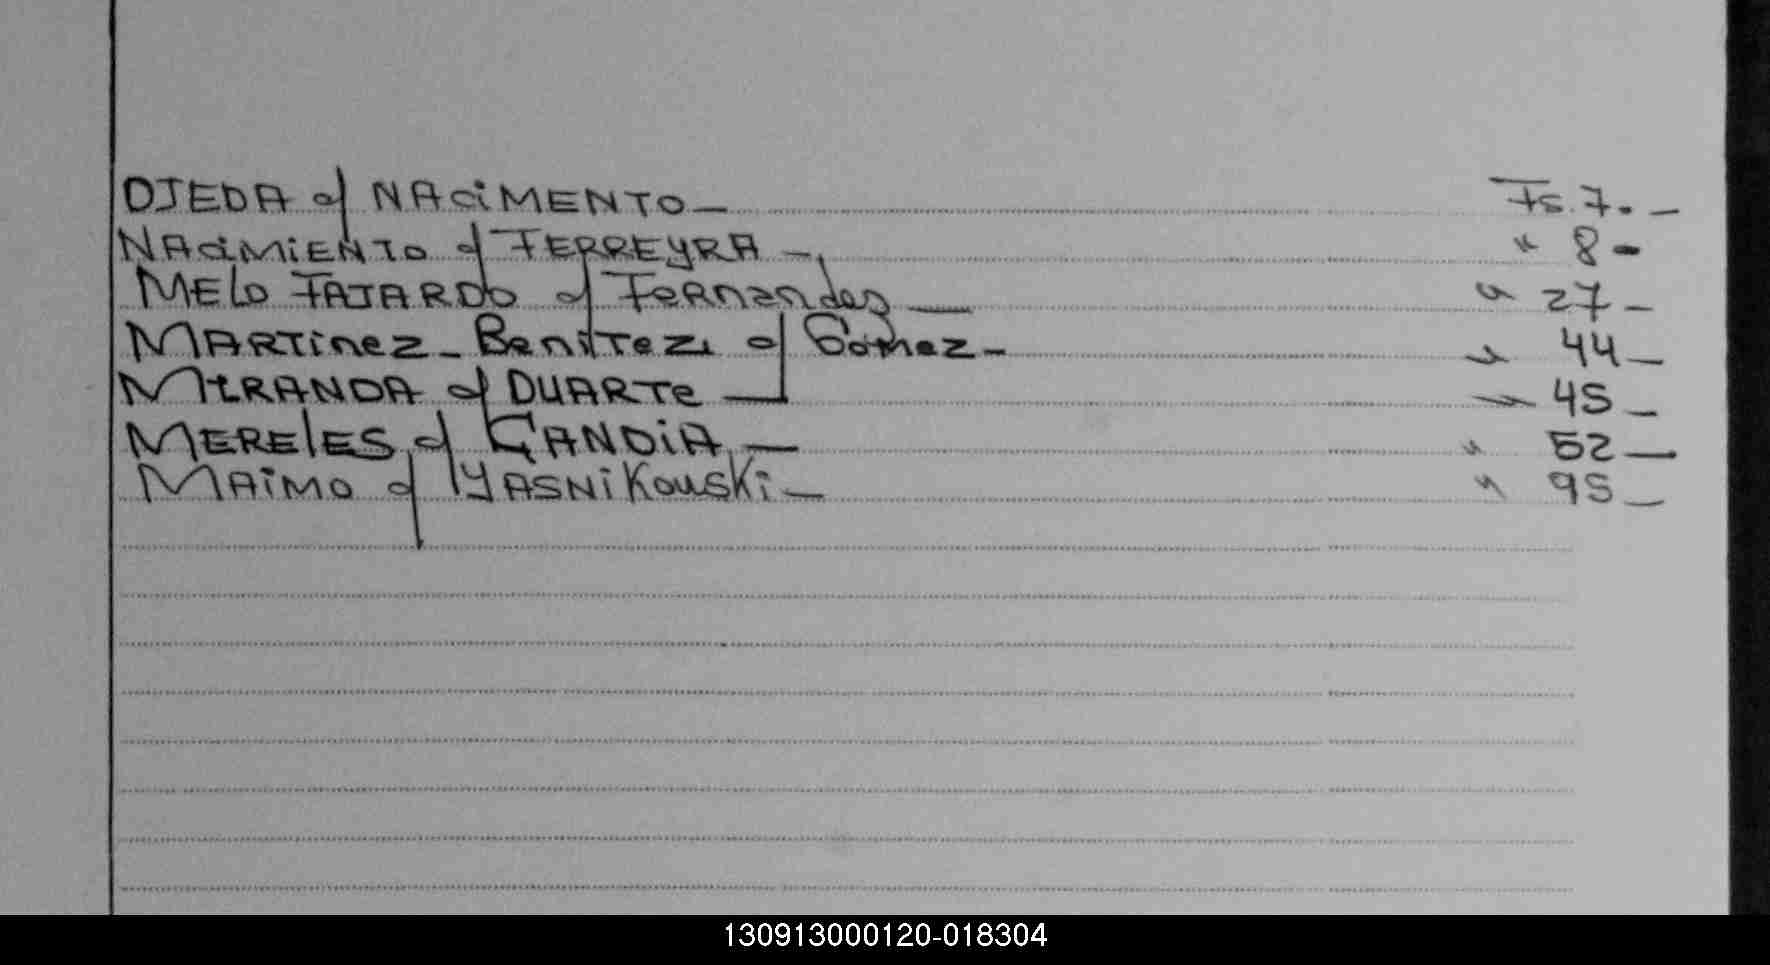 OJEDA c/ NACIMENTO — Fs. 7. —
NACIMIENTO c/ FERREYRA — " 8 —
MELO FAJARDO c/ Fernandez — " 27 —
MARTinez - BeniTez c/ Gomez — " 44 —
MIRANDA c/ DUARTe — " 45 —
MERElES c/ GANDiA — " 52 —
MAiMO c/ YASNiKouski — " 95 —
130913000120-018304